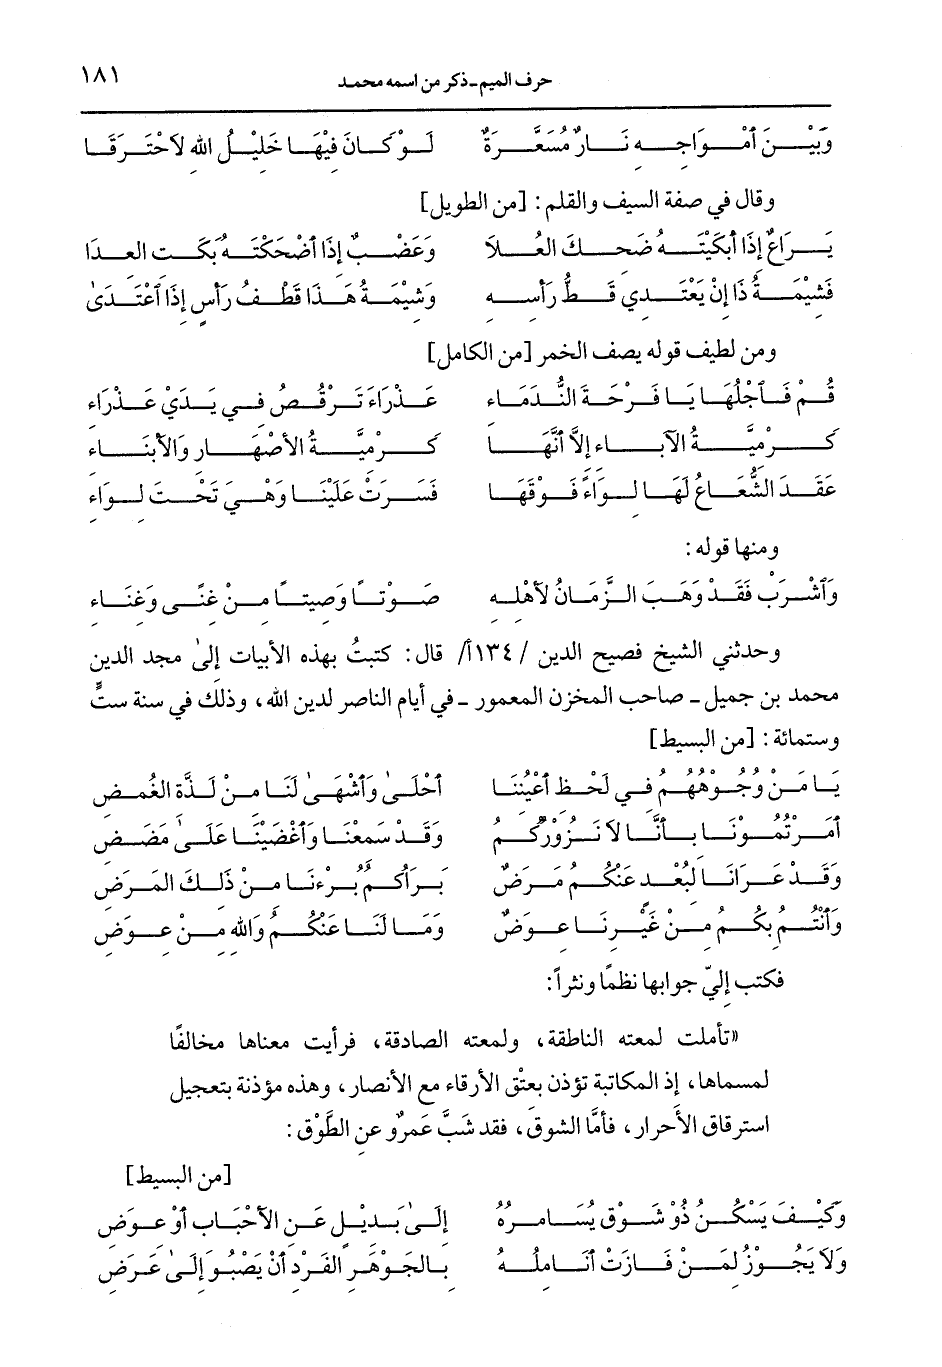 حرف الميم ـ ذكر من اسمه محمد ١٨١
وَبَيْنَ أَمْوَاجِهِ نَارٌ مُسَعَّرَةٌ لَوْ كَانَ فِيْهَا خَلِيْلُ اللهِ لَاحْتَرَقَا
وقال في صفة السيف والقلم: [من الطويل]
يَرَاعٌ إِذَا أَبْكَيْتَهُ ضَحِكَ العُلَا وَعَضْبٌ إِذَا أَضْحَكْتَهُ بَكَتِ العِدَا
فَشِيْمَةُ ذَا إِنْ يَعْتَدِي قَطُّ رَأْسِهِ وَشِيْمَةُ هَذَا قَطْفُ رَأْسٍ إِذَا اعْتَدَىٰ
ومن لطيف قوله يصف الخمر [من الكامل]
قُمْ فَاجْلُهَا يَا فَرْحَةَ النُّدَمَاءِ عَذْرَاءَ تَرْقُصُ فِي يَدَيْ عَذْرَاءِ
كَرْمِيَّةُ الآبَاءِ إِلَّا أَنَّهَا كَرْمِيَّةُ الأَصْهَارِ وَالأَبْنَاءِ
عَقَدَ الشُّعَاعُ لَهَا لِوَاءً فَوْقَهَا فَسَرَتْ عَلَيْنَا وَهْيَ تَحْتَ لِوَاءِ
ومنها قوله:
وَاشْرَبْ فَقَدْ وَهَبَ الزَّمَانُ لأَهْلِهِ صَوْتًا وَصِيتًا مِنْ غِنًى وَغِنَاءِ
وحدثني الشيخ فصيح الدين /١٣٤أ/ قال: كتبتُ بهذه الأبيات إلىٰ مجد الدين
محمد بن جميل ـ صاحب المخزن المعمور ـ في أيام الناصر لدين الله، وذلك في سنة ستٍّ
وستمائة: [من البسيط]
يَا مَنْ وُجُوهُهُمُ فِي لَحْظِ أَعْيُنِنَا أَحْلَىٰ وَأَشْهَىٰ لَنَا مِنْ لَذَّةِ الغُمُضِ
أَمَرْتُمُونَا بِأَنَّا لَا نَزُورُكُمُ وَقَدْ سَمِعْنَا وَأَغْضَيْنَا عَلَىٰ مَضَضِ
وَقَدْ عَرَانَا لِبُعْدٍ عَنْكُمُ مَرَضٌ بِرَأْيِكُمْ بُرْءُنَا مِنْ ذَلِكَ المَرَضِ
وَأَنْتُمُ بِكُمُ مِنْ غَيْرِنَا عِوَضٌ وَمَا لَنَا عَنْكُمُ وَاللهِ مِنْ عِوَضِ
فكتب إليّ جوابها نظمًا ونثراً:
«تأملت لمعته الناطقة، ولمعته الصادقة، فرأيت معناها مخالفًا
لمسماها، إذ المكاتبة تؤذن بعتْقِ الأرقاء مع الأنصار، وهذه مؤذنة بتعجيل
استرقاق الأحرار، فأمَّا الشوق، فقد شَبَّ عَمروٌ عن الطَّوْقِ:
[من البسيط]
وَكَيْفَ يَسْكُنُ ذُو شَوْقٍ يُسَامِرُهُ إِلَىٰ بَدِيْلٍ عَنِ الأَحْبَابِ أَوْ عِوَضِ
وَلَا يَجُوْزُ لِمَنْ فَازَتْ أَنَامِلُهُ بِالجَوْهَرِ الفَرْدِ أَنْ يَصْبُو إِلَىٰ عَرَضِ